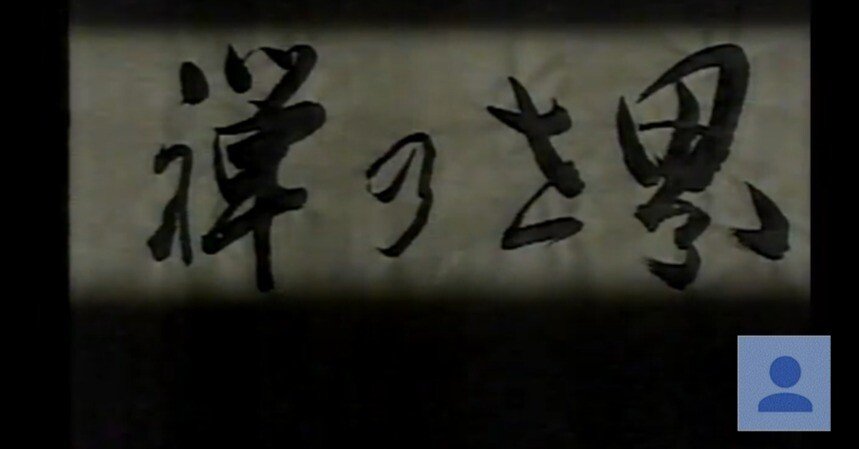 禅の世界